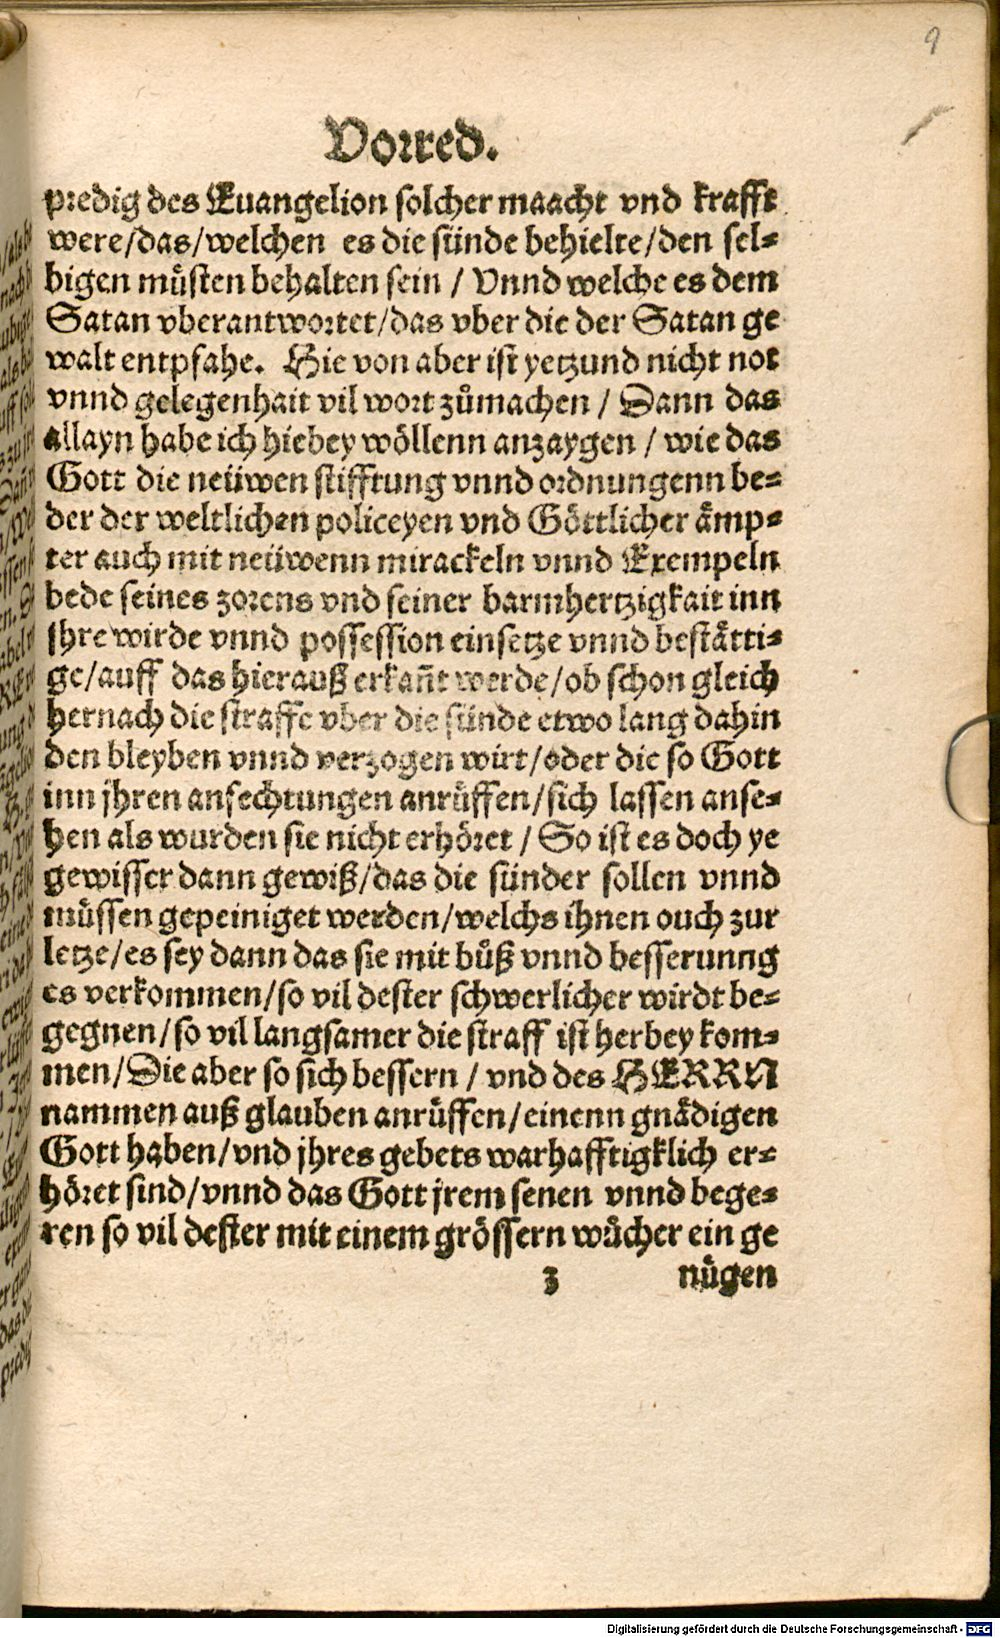 9
Vorred.
predig des Euangelion solcher maacht vnd krafft
were/das/welchen es die sünde behielte/den sel⸗
bigen müsten behalten sein / Vnnd welche es dem
Satan vberantwortet/das vber die der Satan ge
walt entpfahe. Hie von aber ist yetzund nicht not
vnnd gelegenhait vil wort zůmachen / Dann das
allayn habe ich hiebey wöllenn anzaygen / wie das
Gott die neüwen stifftung vnnd ordnungenn be⸗
der der weltlichen policeyen vnd Göttlicher ämp⸗
ter auch mit neüwenn mirackeln vnnd Exempeln
bede seines zorens vnd seiner barmhertzigkait inn
jhre wirde vnnd possession einsetze vnnd bestätti⸗
ge/auff das hierauß erkañt werde/ob schon gleich
hernach die straffe vber die sünde etwo lang dahin
den bleyben vnnd verzogen wirt/oder die so Gott
inn jhren anfechtungen anrüffen/sich lassen anse⸗
hen als wurden sie nicht erhöret / So ist es doch ye
gewisser dann gewiß/das die sünder sollen vnnd
müssen gepeiniget werden/welchs ihnen ouch zur
letze/es sey dann das sie mit bůß vnnd besserunng
es verkommen/so vil dester schwerlicher wirdt be⸗
gegnen/so vil langsamer die straff ist herbey kom⸗
men/Die aber so sich bessern / vnd des HERRN
nammen auß glauben anrüffen/einenn gnädigen
Gott haben/vnd jhres gebets warhafftigklich er⸗
höret sind/vnnd das Gott jrem senen vnnd bege⸗
ren so vil dester mit einem grössern wůcher ein ge
z nügen
Digitalisierung gefördert durch die Deutsche Forschungsgemeinschaft - DFG